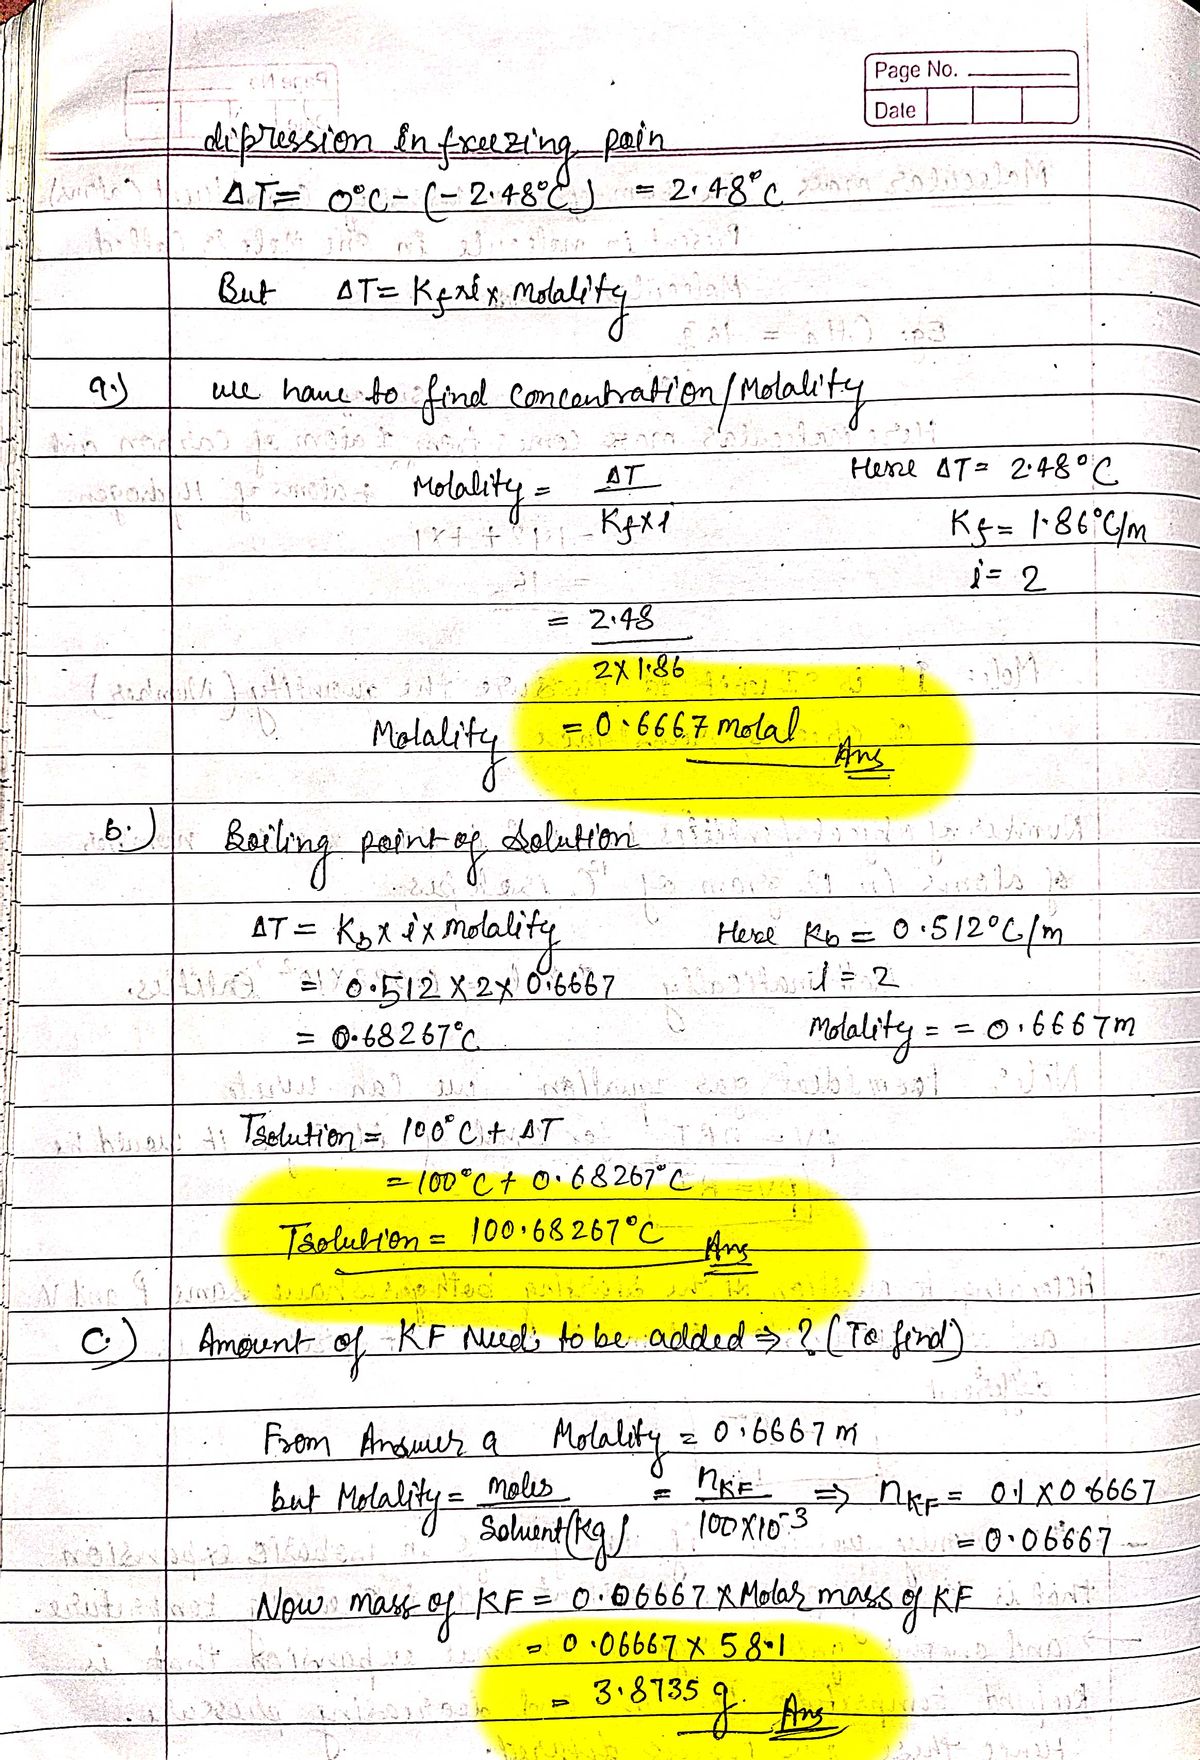 Page No.
Date
dipression in freezing poin
ΔT = 0°C - (-2.48°C) = 2.48°C
But ΔT = Kf × i × Molality
a.) we have to find concentration/Molality
Molality = ΔT / Kf × i
Here ΔT = 2.48°C
Kf = 1.86°C/m
i = 2
= 2.48 / 2 × 1.86
Molality = 0.6667 molal Ans
b.) Boiling point of Solution
ΔT = Kb × i × molality
Here Kb = 0.512°C/m
= 0.512 × 2 × 0.6667
i = 2
= 0.68267°C
Molality = = 0.6667m
Tsolution = 100°C + ΔT
= 100°C + 0.68267°C
Tsolution = 100.68267°C Ans
c.) Amount of KF Need to be added ⇒ ? (To find)
From Answer a Molality = 0.6667 m
but Molality = moles / Solvent(kg) = nKF / 100×10^-3 ⇒ nKF = 0.1 × 0.6667
= 0.06667
Now mass of KF = 0.06667 × Molar mass of KF
= 0.06667 × 58.1
= 3.8735 g. Ans